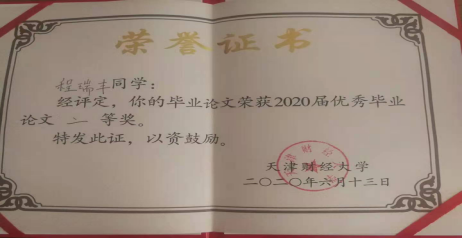 荣誉证书
程瑞丰同学：
经评定，你的毕业论文荣获2020届优秀毕业
论文 二 等奖。
特发此证，以资鼓励。
天津财经大学
二〇二〇年六月十三日